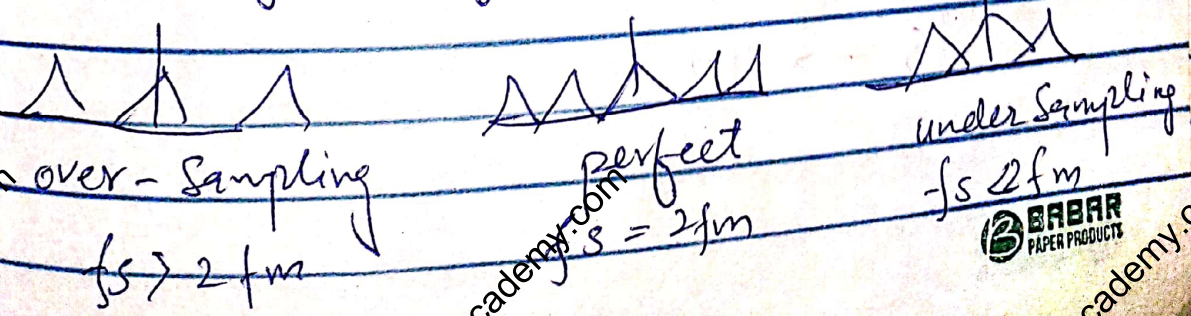 over-Sampling
fs > 2fm
perfect
fs = 2fm
under Sampling
fs < 2fm
BABAR
PAPER PRODUCTS
cademy.com
cademy.c